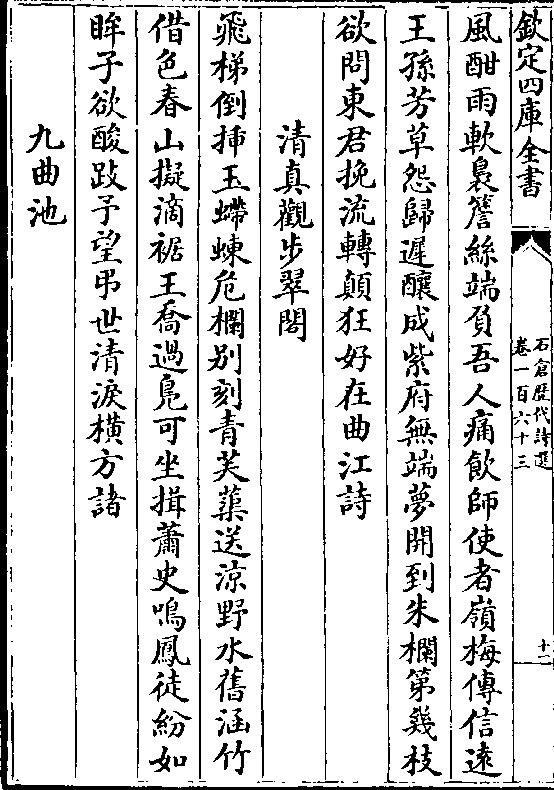 欽定四庫全書
石倉歷代詩選
卷一百六十三
十一
風酣雨軟裊簷絲端負吾人痛飲師使者嶺梅傳信遠
王孫芳草怨歸遲釀成紫府無端夢開到朱欄第幾枝
欲問東君挽流轉顛狂好在曲江詩
清真觀步翠閣
飛梯倒揷玉螮蝀危欄别刻青芙蕖送涼野水舊涵竹
借色春山擬滴裾王喬過鳧可坐揖蕭史鳴鳳徒紛如
眸子欲酸跂予望弔世清淚橫方諸
九曲池